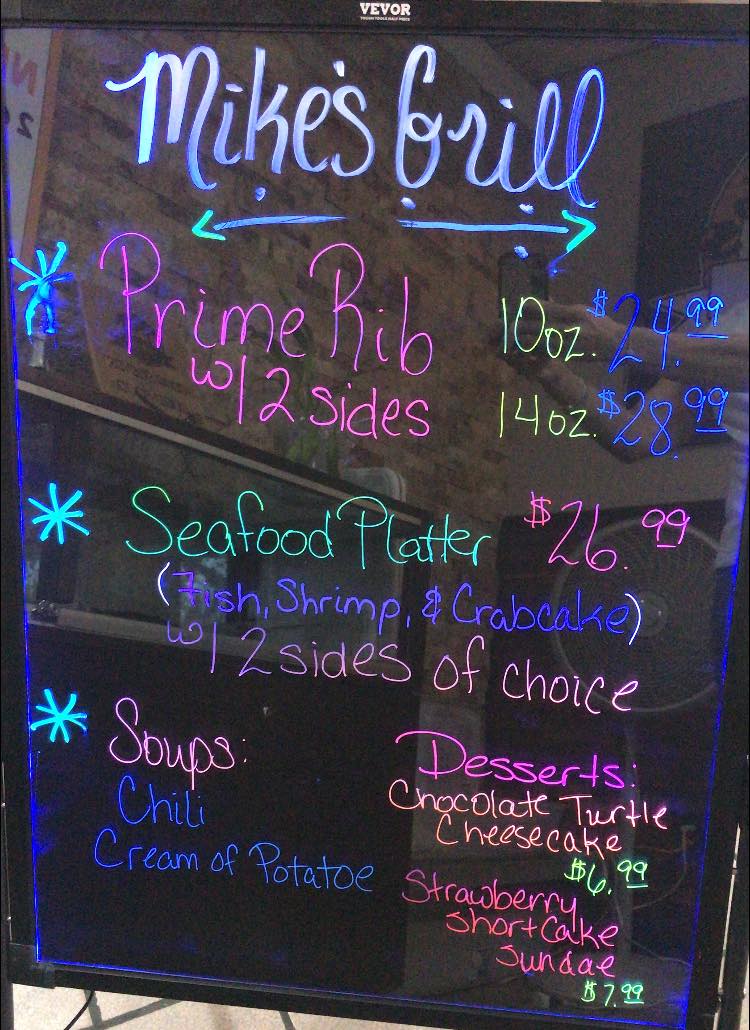 VEVOR
TOUGH TOOLS, HALF PRICE
Mike's Grill
Prime Rib 10oz. $24.99
w/2 sides 14oz. $28.99
Seafood Platter $26.99
(Fish, Shrimp, & Crabcake)
w/ 2 sides of choice
Soups:
Chili
Cream of Potatoe
Desserts:
Chocolate Turtle
Cheesecake
$6.99
Strawberry
shortcake
sundae
$7.99